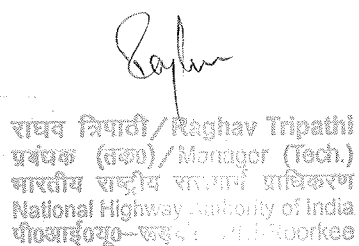 राघव त्रिपाठी/Raghav Tripathi
प्रबंधक (तक0)/Manager (Tech.)
भारतीय राष्ट्रीय राजमार्ग प्राधिकरण
National Highway Authority of India
पी0आई0यू0-रूड़की